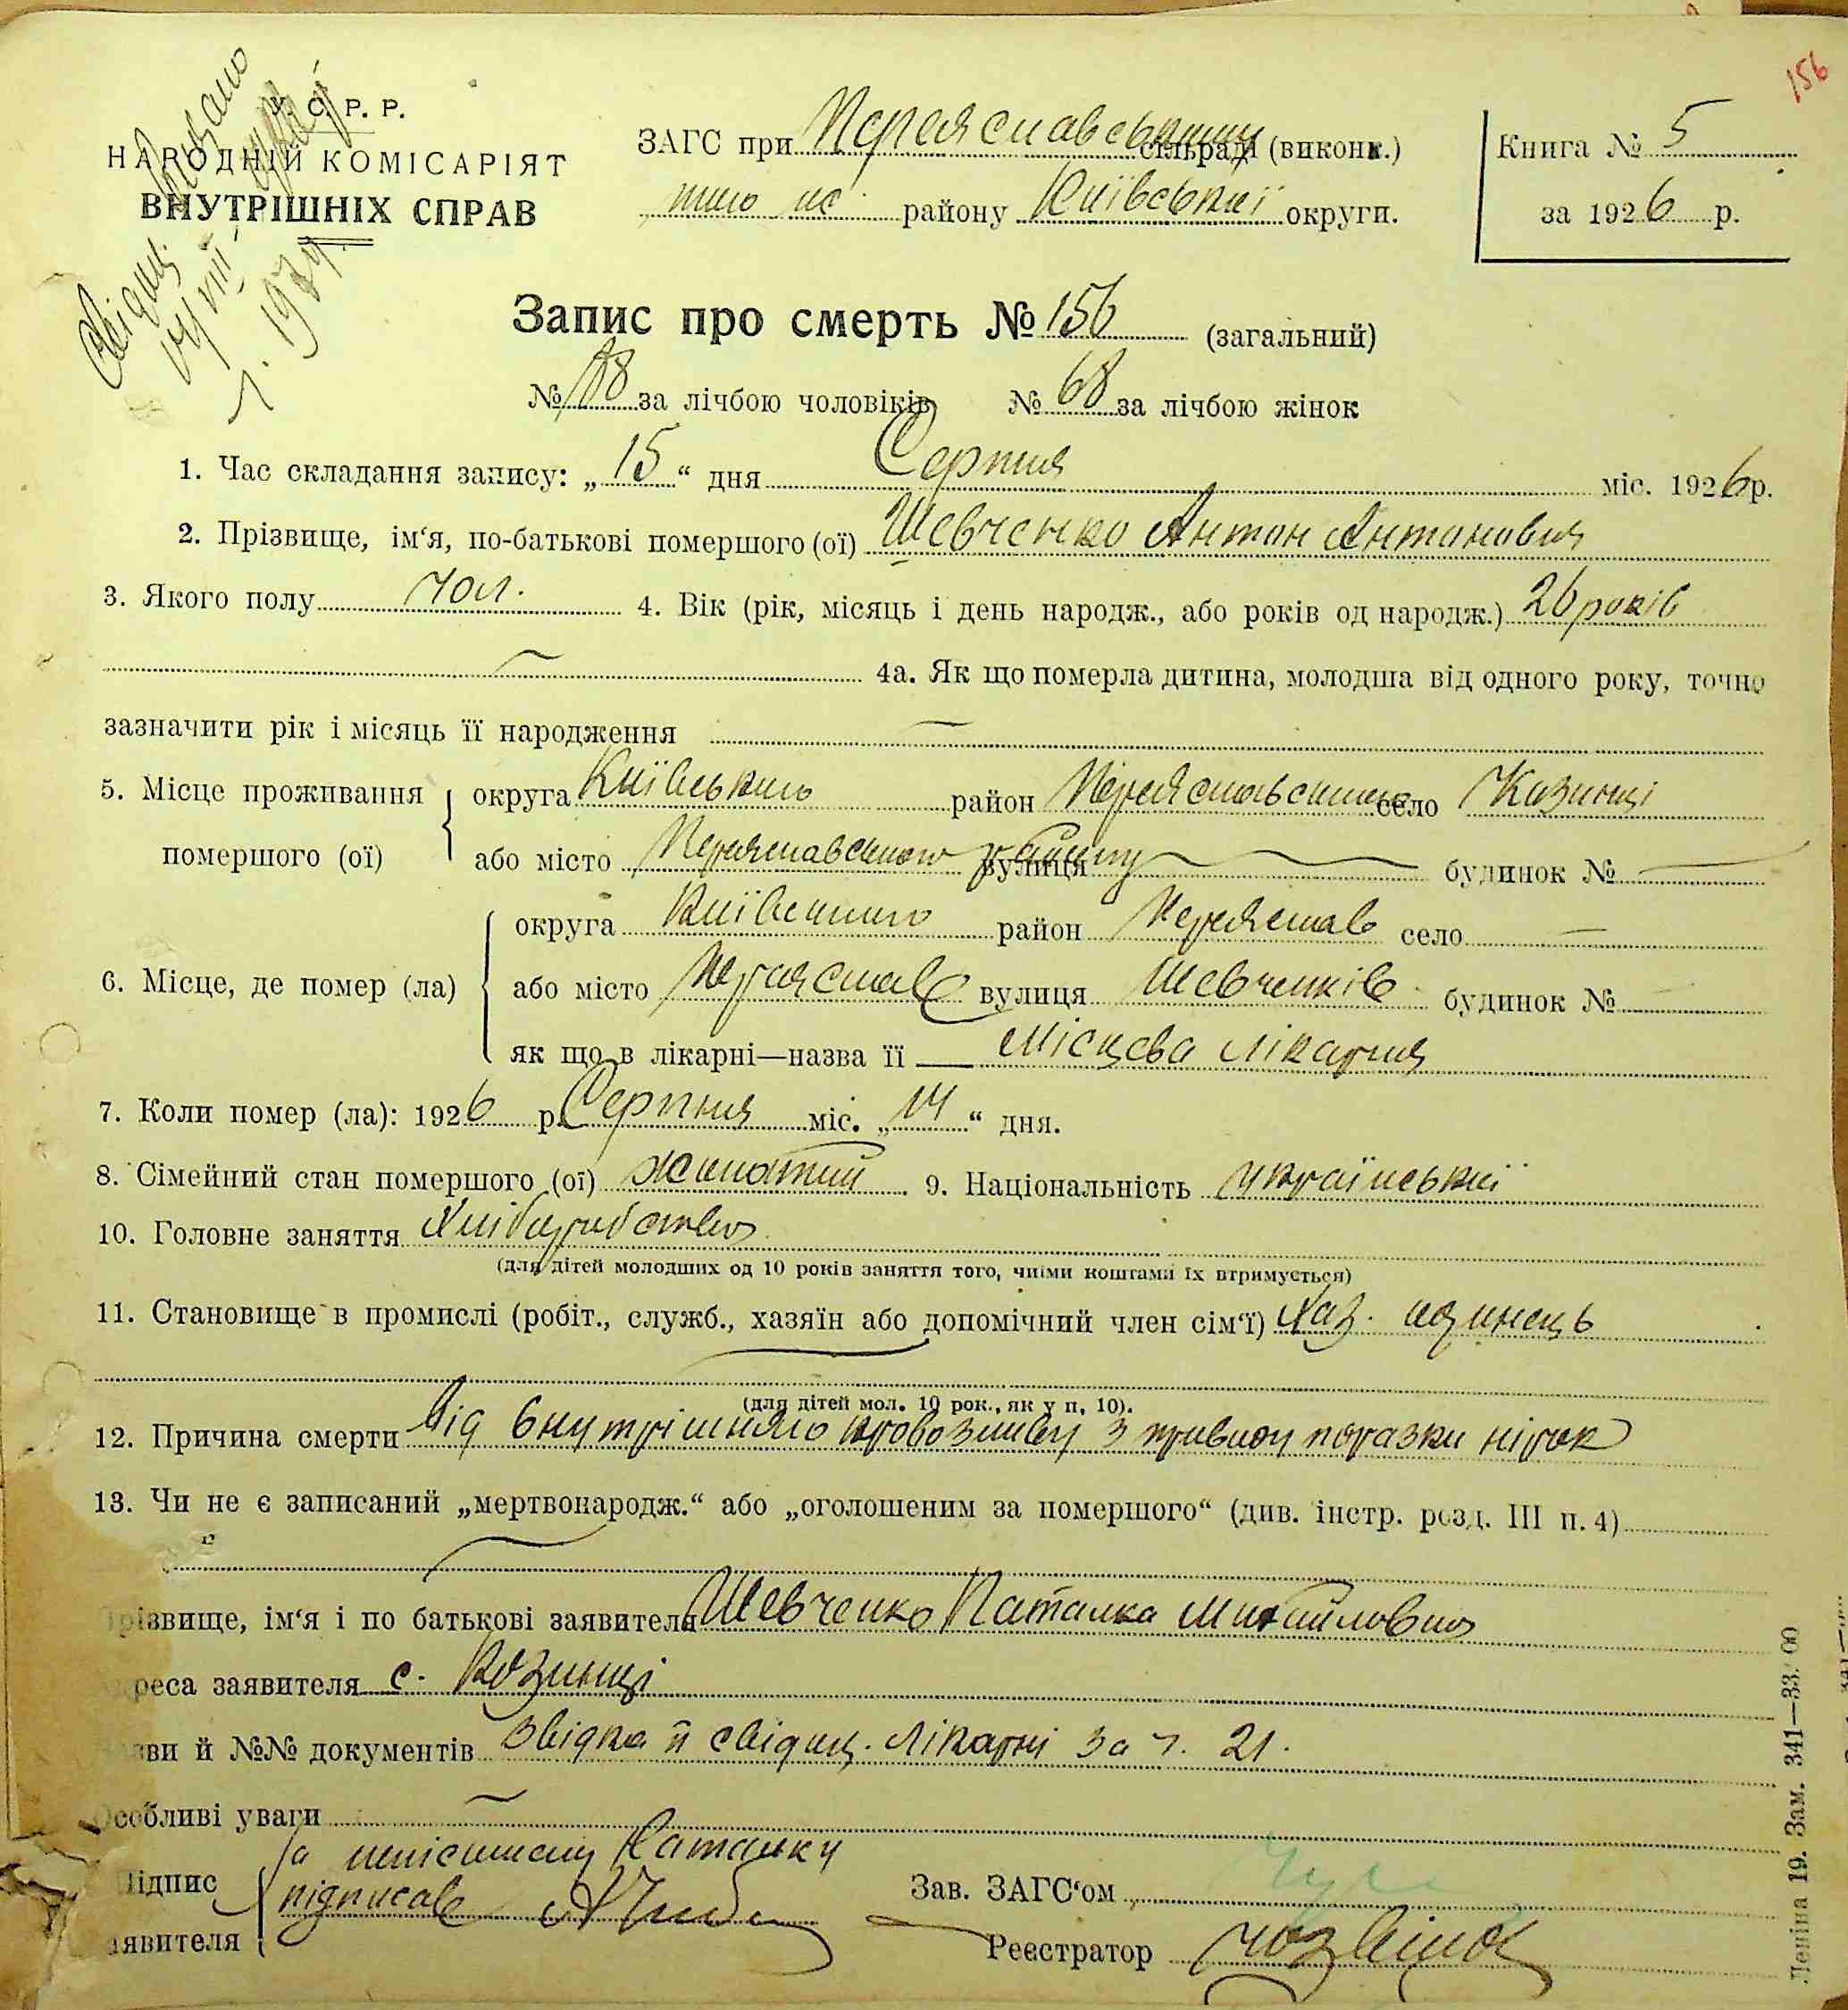 156
У. С. Р. Р.
НАРОДНІЙ КОМІСАРІЯТ
ВНУТРІШНІХ СПРАВ
ЗАГС при Переяславському сільраді (виконк.)
району Київської округи.
Книга № 5
за 1926 р.
Запис про смерть № 156 (загальний)
№ 88 за лічбою чоловіків № 68 за лічбою жінок
1. Час складання запису: „15“ дня Серпня міс. 1926 р.
2. Прізвище, ім‘я, по-батькові помершого (ої) Шевченко Антон Антонович
3. Якого полу чол. 4. Вік (рік, місяць і день народж., або років од народж.) 26 років
4а. Як що померла дитина, молодша від одного року, точно
зазначити рік і місяць її народження
5. Місце проживання помершого (ої) округа Київського район Переяславського село Козинці
або місто Переяславського району вулиця будинок №
6. Місце, де помер (ла) округа Київського район Переяслав село —
або місто Переяслав вулиця Шевченків будинок №
як що в лікарні—назва її Місцева лікарня
7. Коли помер (ла): 1926 р. Серпня міс. „14“ дня.
8. Сімейний стан помершого (ої) жонатий 9. Національність української
10. Головне заняття Хліборобство
(для дітей молодших од 10 років заняття того, чиїми коштами їх втримується)
11. Становище в промислі (робіт., служб., хазяїн або допомічний член сім‘ї) Хаз. одинець
(для дітей мол. 10 рок., як у п. 10).
12. Причина смерти Від внутрішнього кровозливу з приводу поразки нірок
13. Чи не є записаний „мертвонародж.“ або „оголошеним за помершого“ (див. інстр. розд. III п. 4)
Прізвище, ім‘я і по батькові заявителя Шевченко Наталка Михайловна
Адреса заявителя с. Козинці
Назви й №№ документів Звідка й свідоц. лікарні за ч. 21.
Особливі уваги
Підпис заявителя За неписьмену Наталку
підписав
Зав. ЗАГС‘ом
Реєстратор
Леніна 19. Зам. 341—33/00